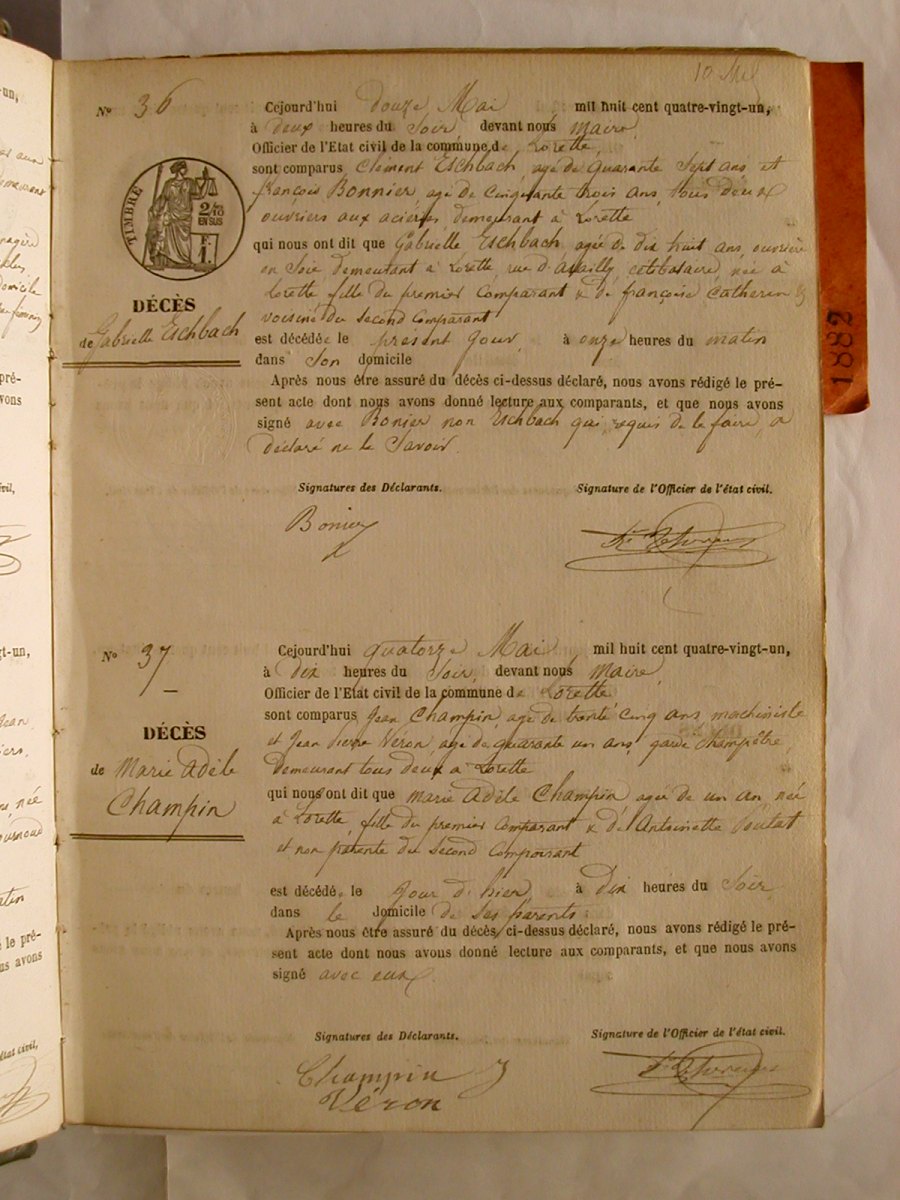 10 Mil
un,
N° 36
Cejourd'hui douze Mai mil huit cent quatre-vingt-un,
à deux heures du Soir, devant nous Maire,
Officier de l'Etat civil de la commune de Lorette,
sont comparus Clément Eschbach, agé de Quarante Sept ans, et
françois Bonnier, agé de Cinquante trois ans, tous deux
ouvriers aux aciéries demeurant à Lorette
TIMBRE
2/10
EN SUS
F.
1.
qui nous ont dit que Gabrielle Eschbach, agée de dix huit ans, ouvrière
en Soie demeurant à Lorette, rue d'Availly, célibataire, née à
Lorette fille du premier Comparant & de françoise Catherin &
voisine du Second Comparant
DÉCÈS
de Gabrielle Eschbach
est décédée le présent Jour, à onze heures du matin
dans Son domicile
Après nous être assuré du décès ci-dessus déclaré, nous avons rédigé le pré-
sent acte dont nous avons donné lecture aux comparants, et que nous avons
signé avec Bonier non Eschbach qui, requis de le faire, a
déclaré ne le Savoir.
Signatures des Déclarants. Signature de l'Officier de l'état civil.
Bonier
1882
N° 37
Cejourd'hui quatorze Mai mil huit cent quatre-vingt-un,
à dix heures du Soir, devant nous Maire,
Officier de l'Etat civil de la commune de Lorette
sont comparus Jean Champin, agé de trente Cinq ans, machiniste
et Jean Pierre Véron, agé de quarante un ans, garde Champêtre,
Demeurant tous deux à Lorette
DÉCÈS
de Marie Adèle
Champin
qui nous ont dit que Marie Adèle Champin agée de un an, née
à Lorette, fille du premier Comparant & de Antoinette
et non parente du Second Comparant
est décédée le Jour d'hier, à Dix heures du Soir
dans le Domicile de Ses parents
Après nous être assuré du décès ci-dessus déclaré, nous avons rédigé le pré-
sent acte dont nous avons donné lecture aux comparants, et que nous avons
signé avec eux.
Signatures des Déclarants. Signature de l'Officier de l'état civil.
Champin J
Véron